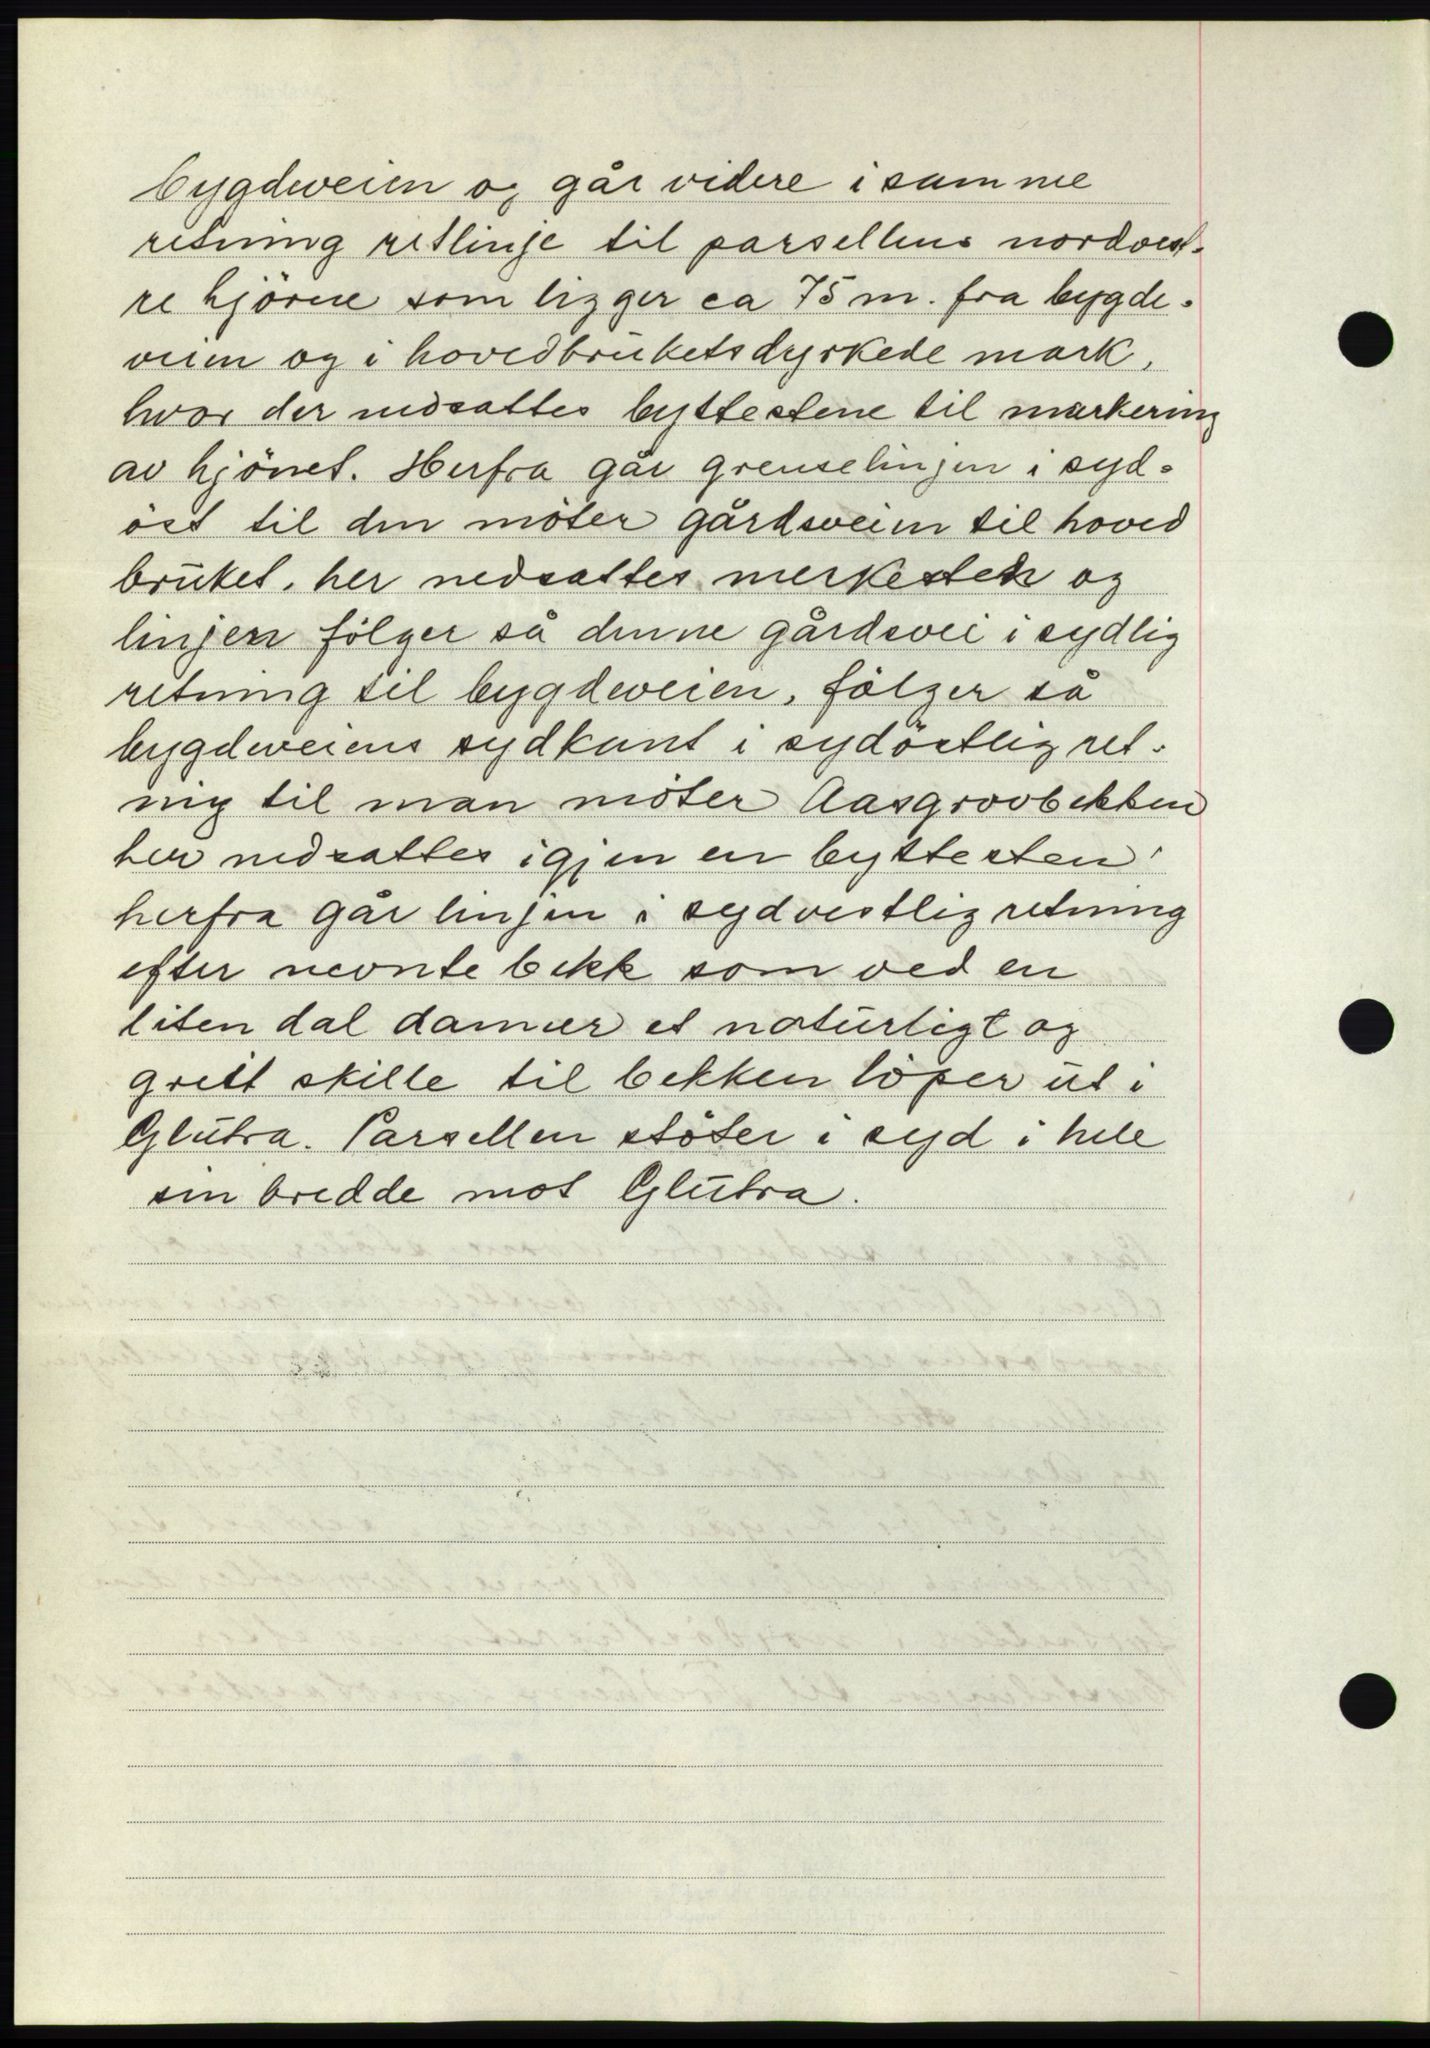 bygdeveien og går videre i samme
retning retlinje til parsellens nordvest-
re hjörne som ligger ca 75 m. fra bygde-
veien og i hovedbrukets dyrkede mark,
hvor der nedsattes byttestene til markering
av hjönet. Herfra går grenselinjen i syd-
öst til den möter gårdsveien til hoved
bruket, her nedsattes merkesten og
linjen fölger så denne gårdsvei i sydlig
retning til bygdeveien, fölger så
bygdeveiens sydkant i sydöstlig ret-
nig til man möter Aasgrovbekken
her nedsattes igjen en byttesten,
herfra går linjen i sydvestlig retning
efter nevnte bekk som ved en
liten dal danner et naturligt og
greit skille til bekken löper ut i
Glutra. Parsellen stöter i syd i hele
sin bredde mot Glutra.